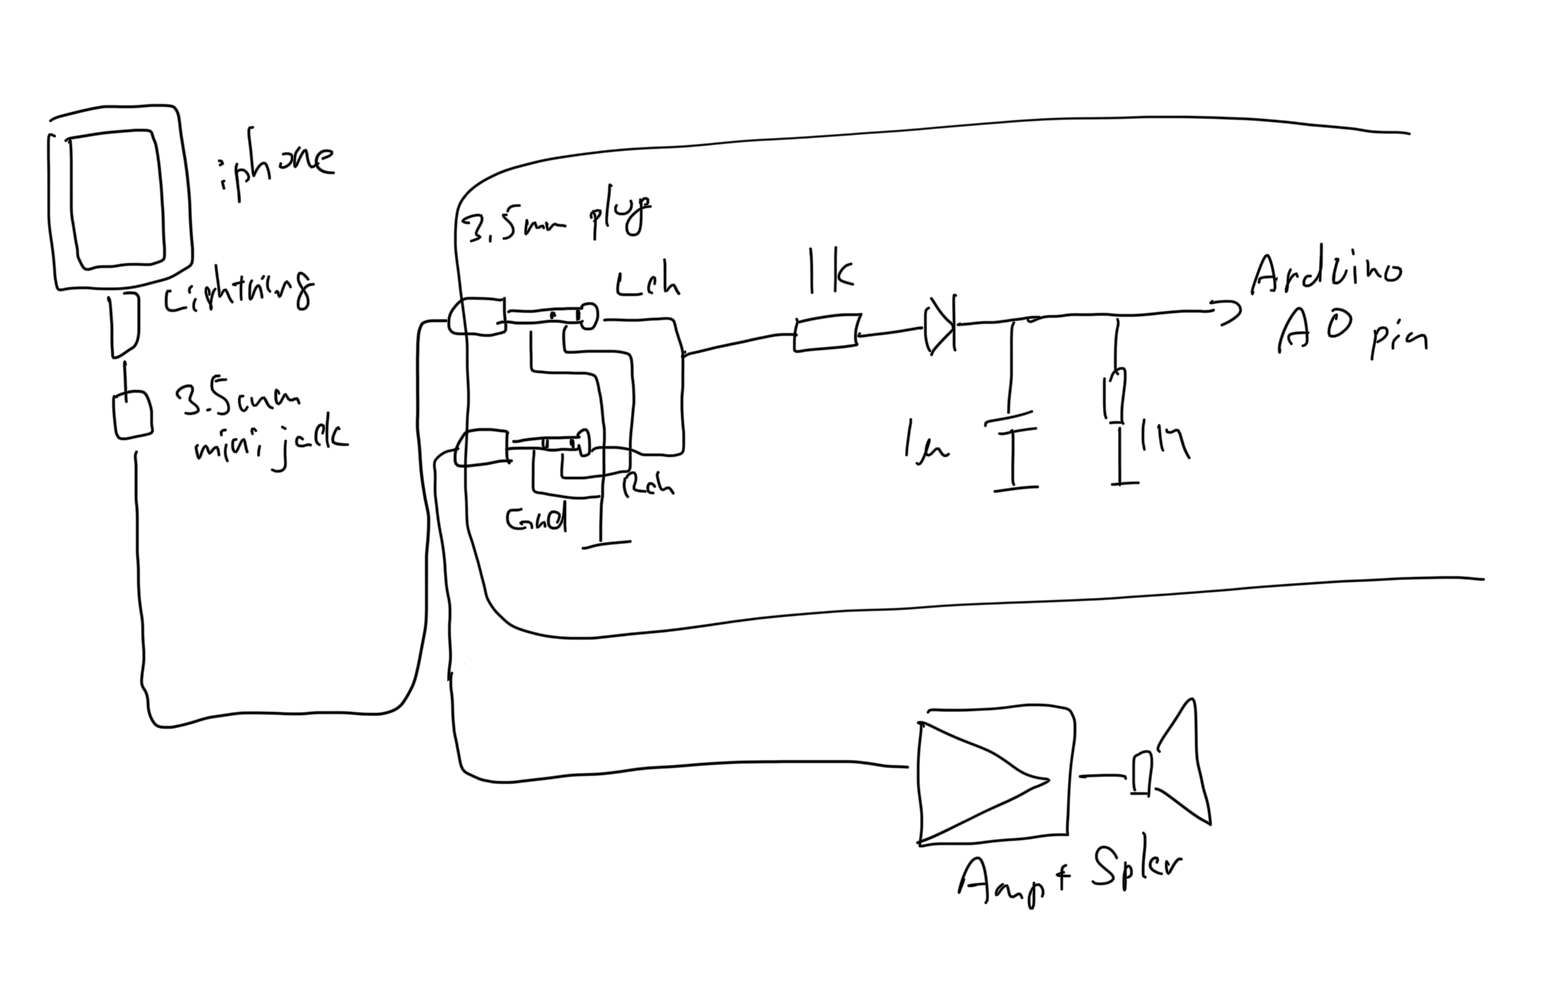 iphone
Lightning
3.5mm
mini jack
3.5mm plug
Lch
Rch
Gnd
1k
1μ
1M
Arduino
A0 pin
Amp + Spker